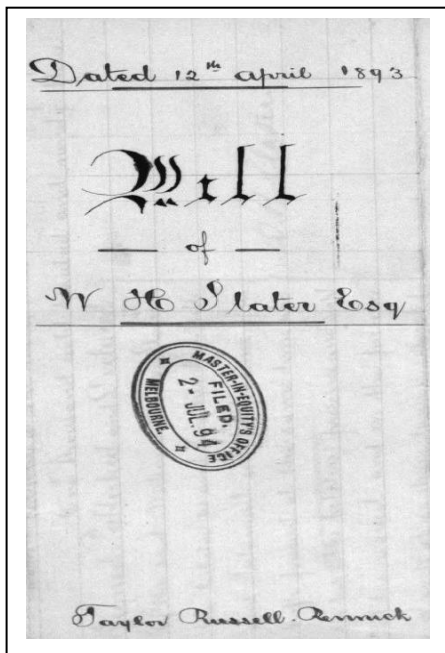 Dated 12th April 1893
Will
of
W H Slater Esq
MASTER-IN-EQUITY'S OFFICE
FILED.
2-JUL.94
MELBOURNE.
Taylor Russell. Rennick